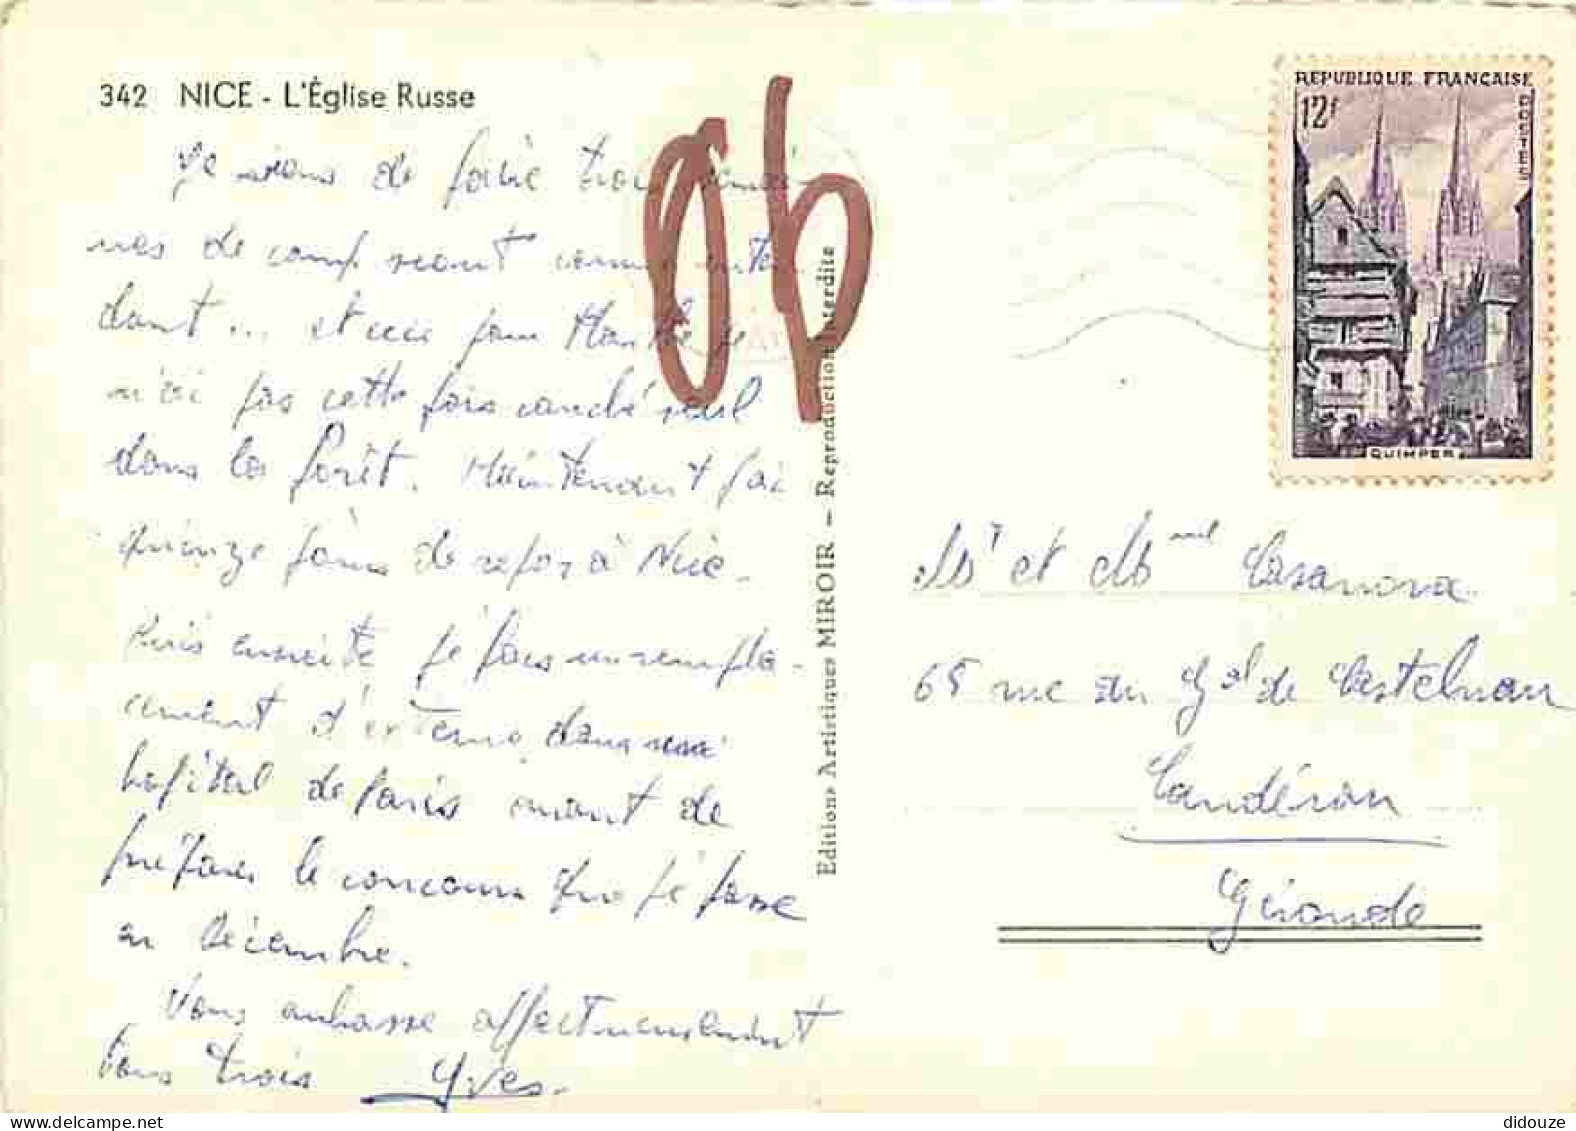 342 NICE - L'Église Russe
Je viens de faire trois semai-
nes de camp
dant ... et ceci pour
n'ai pas cette fois couché seul
dans la forêt. Maintenant j'ai
quinze jours de repos à Nice.
Puis ensuite je fais un rempla-
cement d'externe dans
hôpital de Paris avant de
préparer le concours que je passe
en Décembre.
Vous embrasse affectueusement
tous trois Yves.
06
Editions Artistiques MIROIR — Reproduction interdite
REPUBLIQUE FRANÇAISE
12F
POSTES
QUIMPER
Mr et Casanova
65 rue du Gal de Castelnau
Caudéran
Gironde
didouze